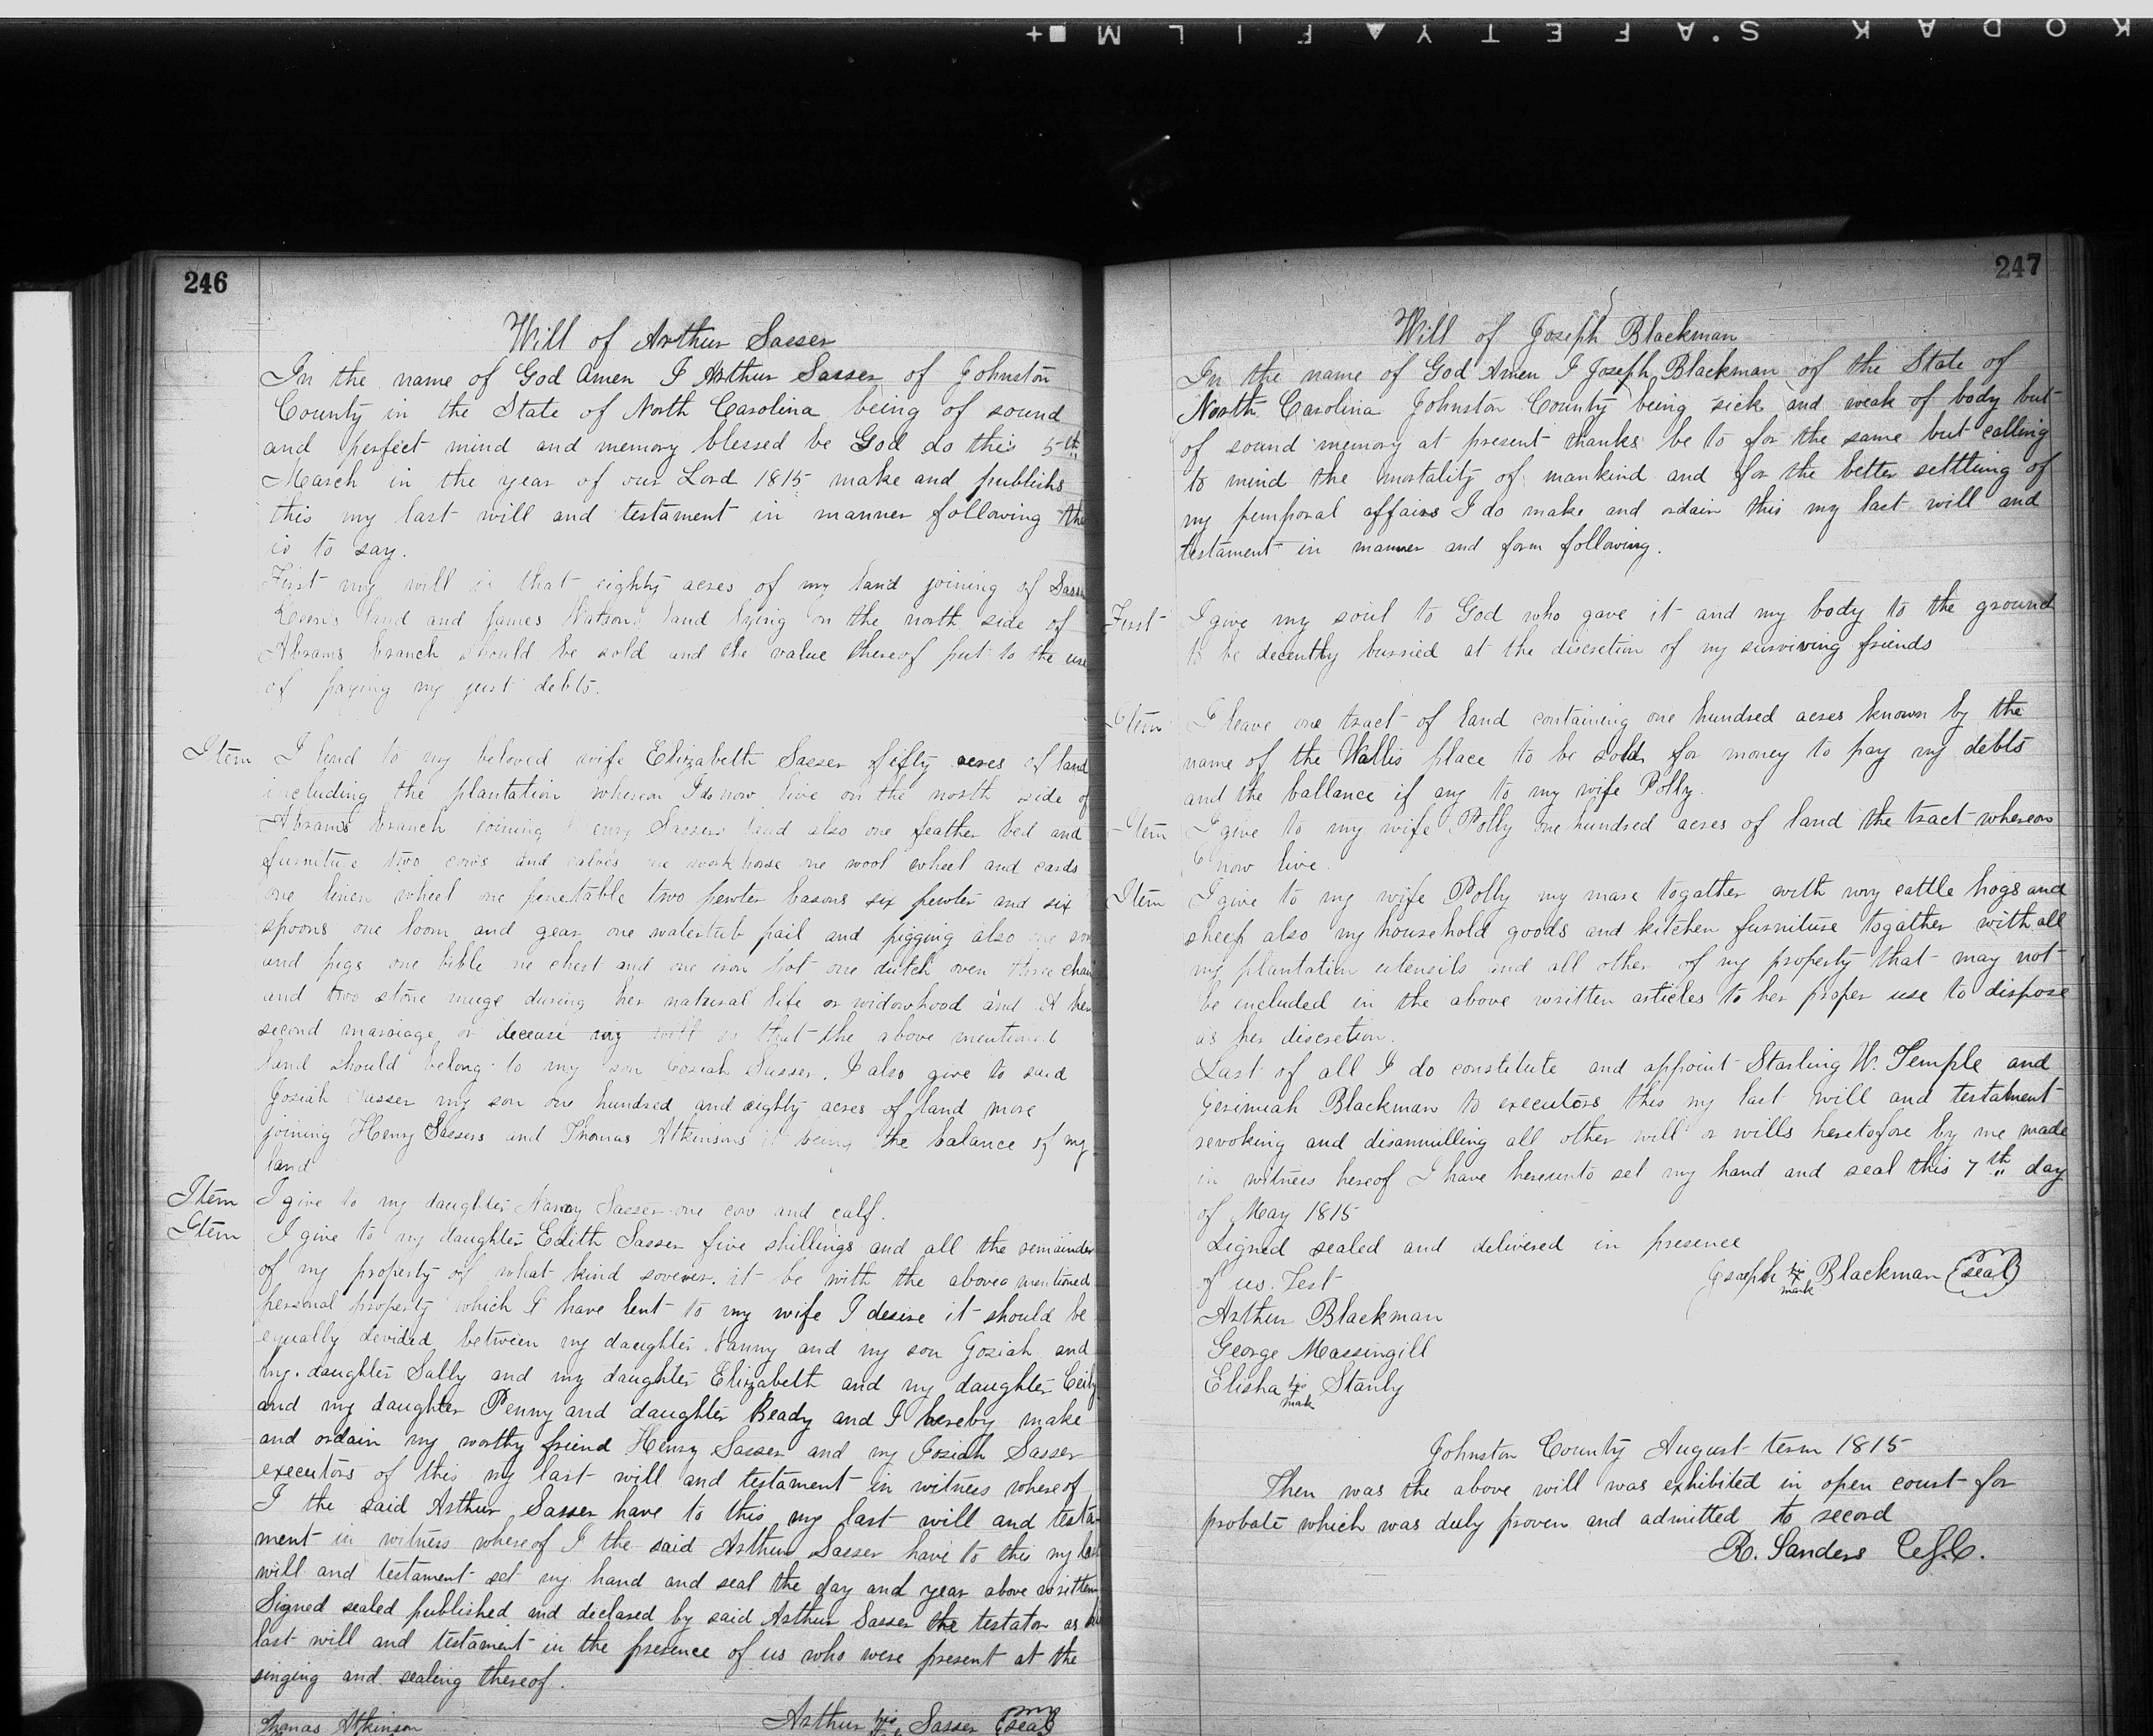 KODAK S'AFETY FILM
246
Will of Arthur Sasser
In the name of God Amen I Arthur Sasser of Johnston
County in the State of North Carolina being of sound
and perfect mind and memory blessed be God do this 5th
March in the year of our Lord 1815 make and publish
this my last will and testament in manner following
is to say.
First my will is that eighty acres of my land joining of
land and James Watsons land lying on the north side of
Abrams branch should be sold and the value thereof put to the use
of paying my just debts.
Item I lend to my beloved wife Elizabeth Sasser fifty acres of land
including the plantation whereon I do now live on the north side of
Abrams branch joining Henry Sassers land also one feather bed and
furniture two cows and calves one work horse one wool wheel and cards
one linen wheel one two pewter basons six pewter and six
spoons one loom and gear one watertub pail and pigging also one
and pigs one bible one chest and one iron pot one dutch oven three
and two stone mugs during her natural life or widowhood and at her
second marriage or decease my will is that the above mentioned
land should belong to my son Josiah Sasser. I also give to said
Josiah Sasser my son one hundred and eighty acres of land more
joining Henry Sassers and Thomas Atkinsons it being the balance of my
land
Item I give to my daughter Nancy Sasser one cow and calf.
Item I give to my daughter Edith Sasser five shillings and all the remainder
of my property of what kind sovever it be with the above mentioned
personal property which I have lent to my wife I desire it should be
equally devided between my daughter and my son Josiah and
my daughter Sally and my daughter Elizabeth and my daughter
and my daughter Penny and daughter Ready and I hereby make
and ordain my worthy friend Henry Sasser and my Josiah Sasser
executors of this my last will and testament in witness whereof
I the said Arthur Sasser have to this my last will and testa-
ment in witness whereof I the said Arthur Sasser have to this my last
will and testament set my hand and seal the day and year above written
Signed sealed published and declared by said Arthur Sasser the testator as
last will and testament in the presence of us who were present at the
singing and sealing thereof.
Thomas Atkinson Arthur his Sasser (seal)
247
Will of Joseph Blackman
In the name of God Amen I Joseph Blackman of the State of
North Carolina Johnston County being sick and weak of body but
of sound memory at present thanks be to for the same but calling
to mind the mortality of mankind and for the better settling of
my pemporal affairs I do make and ordain this my last will and
testament in manner and form following.
First I give my soul to God who gave it and my body to the ground
to be decently burried at the discretion of my surviving friends
Item I leave one tract of land containing one hundred acres known by the
name of the Wallis place to be sold for money to pay my debts
and the ballance if any to my wife Polly.
Item I give to my wife Polly one hundred acres of land the tract whereon
I now live.
Item I give to my wife Polly my mare togather with my cattle hogs and
sheep also my household goods and kitchen furniture togather with all
my plantation utensils and all other of my property that may not
be included in the above written articles to her proper use to dispose
as her discretion.
Last of all I do constitute and appoint Starling W. Temple and
Jerimiah Blackman to executors this my last will and testatment
revoking and disannulling all other will or wills heretofore by me made
in witness hereof I have hereunto set my hand and seal this 7th day
of May 1815
Signed sealed and delivered in presence
of us. Test Joseph his x mark Blackman (seal)
Arthur Blackman
George Massingill
Elisha his x mark Stanly
Johnston County August term 1815
Then was the above will was exhibited in open court for
probate which was duly proven and admitted to record
R. Sanders C.J.C.